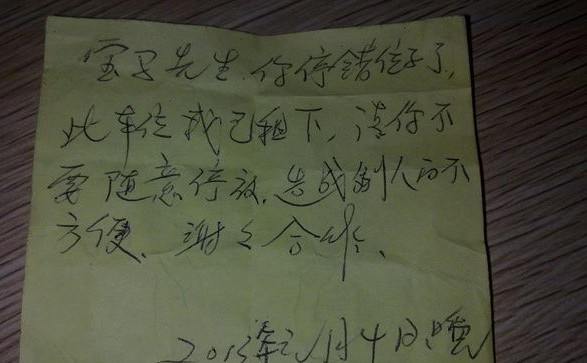 宝马先生,你停错位子了,
此车位我已租下,请你不
要随意停放,造成别人的不
方便、谢々合作、
2013年2月4日晚